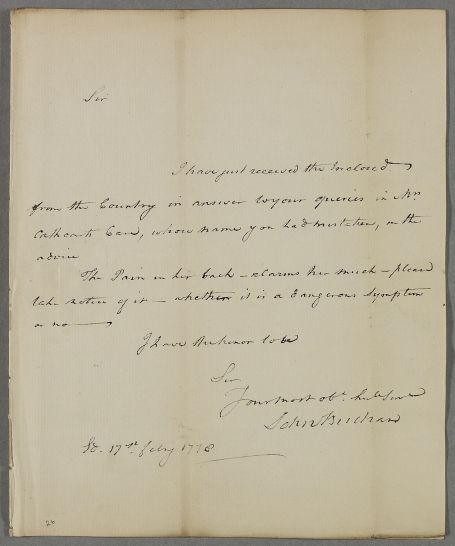 Sir
I have just received the Inclosed
from the Country in answer to your queries in Mrs
Cathcarts Case, whose name you had mistaken, in the
advice
The Pain in her back – alarms her much – please
take notice of it – whether it is a dangerous Symptom
or no
I have the honor to be
Sir
Your most obt. huble Servt
John Buchan
Ed. 17th febry 1778
26